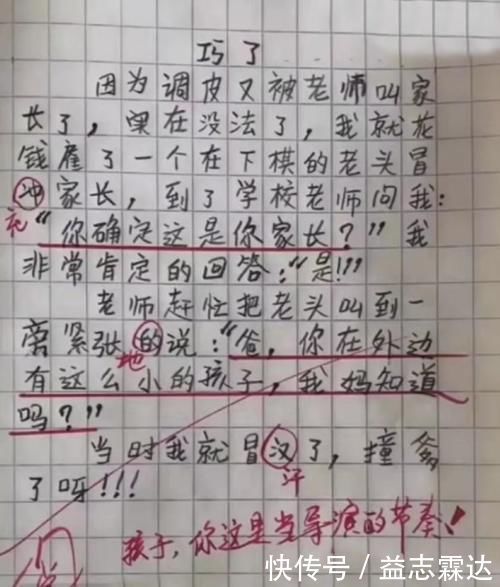 巧了
因为调皮又被老师叫家
长了，实在没法了，我就花
钱雇了一个在下棋的老头冒
冲家长，到了学校老师问我：
充
“你确定这是你家长？”我
非常肯定的回答：“是！！”
老师赶忙把老头叫到一
旁紧张的说：“爸，你在外边
地
有这么小的孩子，我妈知道
吗？”
当时我就冒汉了，撞爹
汗
了呀！！！
孩子，你这是当导演的节奏！
快传号／益志霖达